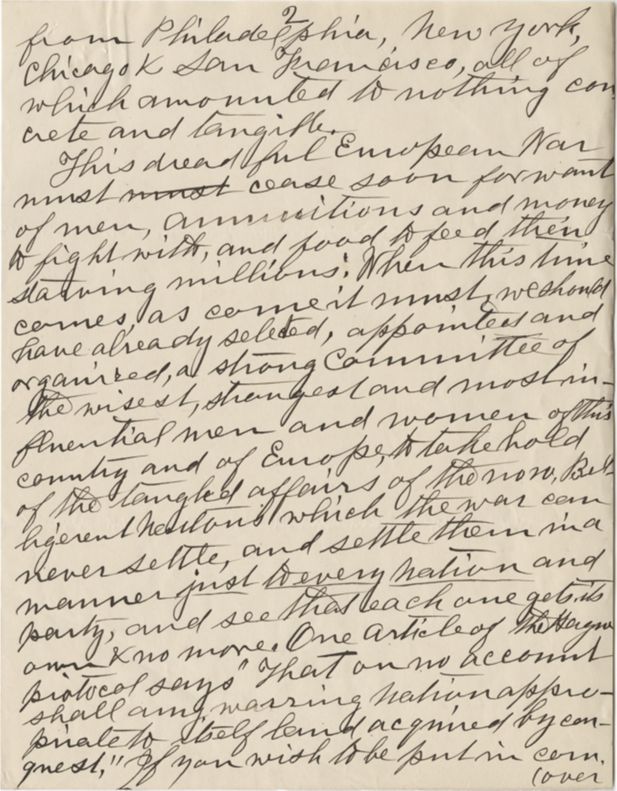 2
from Philadelphia, New York,
Chicago & San Francisco, all of
which amounted to nothing con
crete and tangible.
This dreadful European War
must ~~must~~ cease soon for want
of men, ammunitions and money
to fight with, and food to feed their
starving millions. When this time
comes, as come it must, we should
have already seleted, appointed and
organized, a strong Committee of
the wisest, strongest and most in-
fluential men and women of this
country and of Europe, to take hold
of the tangled affairs of the now, Bel-
ligerent Nations which the war can
never settle, and settle them in a
manner just to every nation and
party, and see that each one gets its
own & no more. One article of the Hague
protocol says "That on no account
shall any warring nation appro-
priate to itself land acquired by con-
quest." If you wish to be put in com.
(over